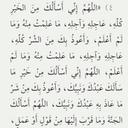 ٤) «اللَّهُمَّ إِنِّي أَسْأَلُكَ مِنَ الْخَيْرِ
كُلِّهِ، عَاجِلِهِ وَآجِلِهِ، مَا عَلِمْتُ مِنْهُ وَمَا لَمْ
أَعْلَمْ، وَأَعُوذُ بِكَ مِنَ الشَّرِّ كُلِّهِ،
عَاجِلِهِ وَآجِلِهِ، مَا عَلِمْتُ مِنْهُ وَمَا لَمْ
أَعْلَمْ، اللَّهُمَّ إِنِّي أَسْأَلُكَ مِنْ خَيْرِ مَا
سَأَلَكَ عَبْدُكَ وَنَبِيُّكَ، وَأَعُوذُ بِكَ مِنْ شَرِّ
مَا عَاذَ بِهِ عَبْدُكَ وَنَبِيُّكَ، اللَّهُمَّ أَسْأَلُكَ
الْجَنَّةَ وَمَا قَرَّبَ إِلَيْهَا مِنْ قَوْلٍ أَوْ عَمَلٍ،